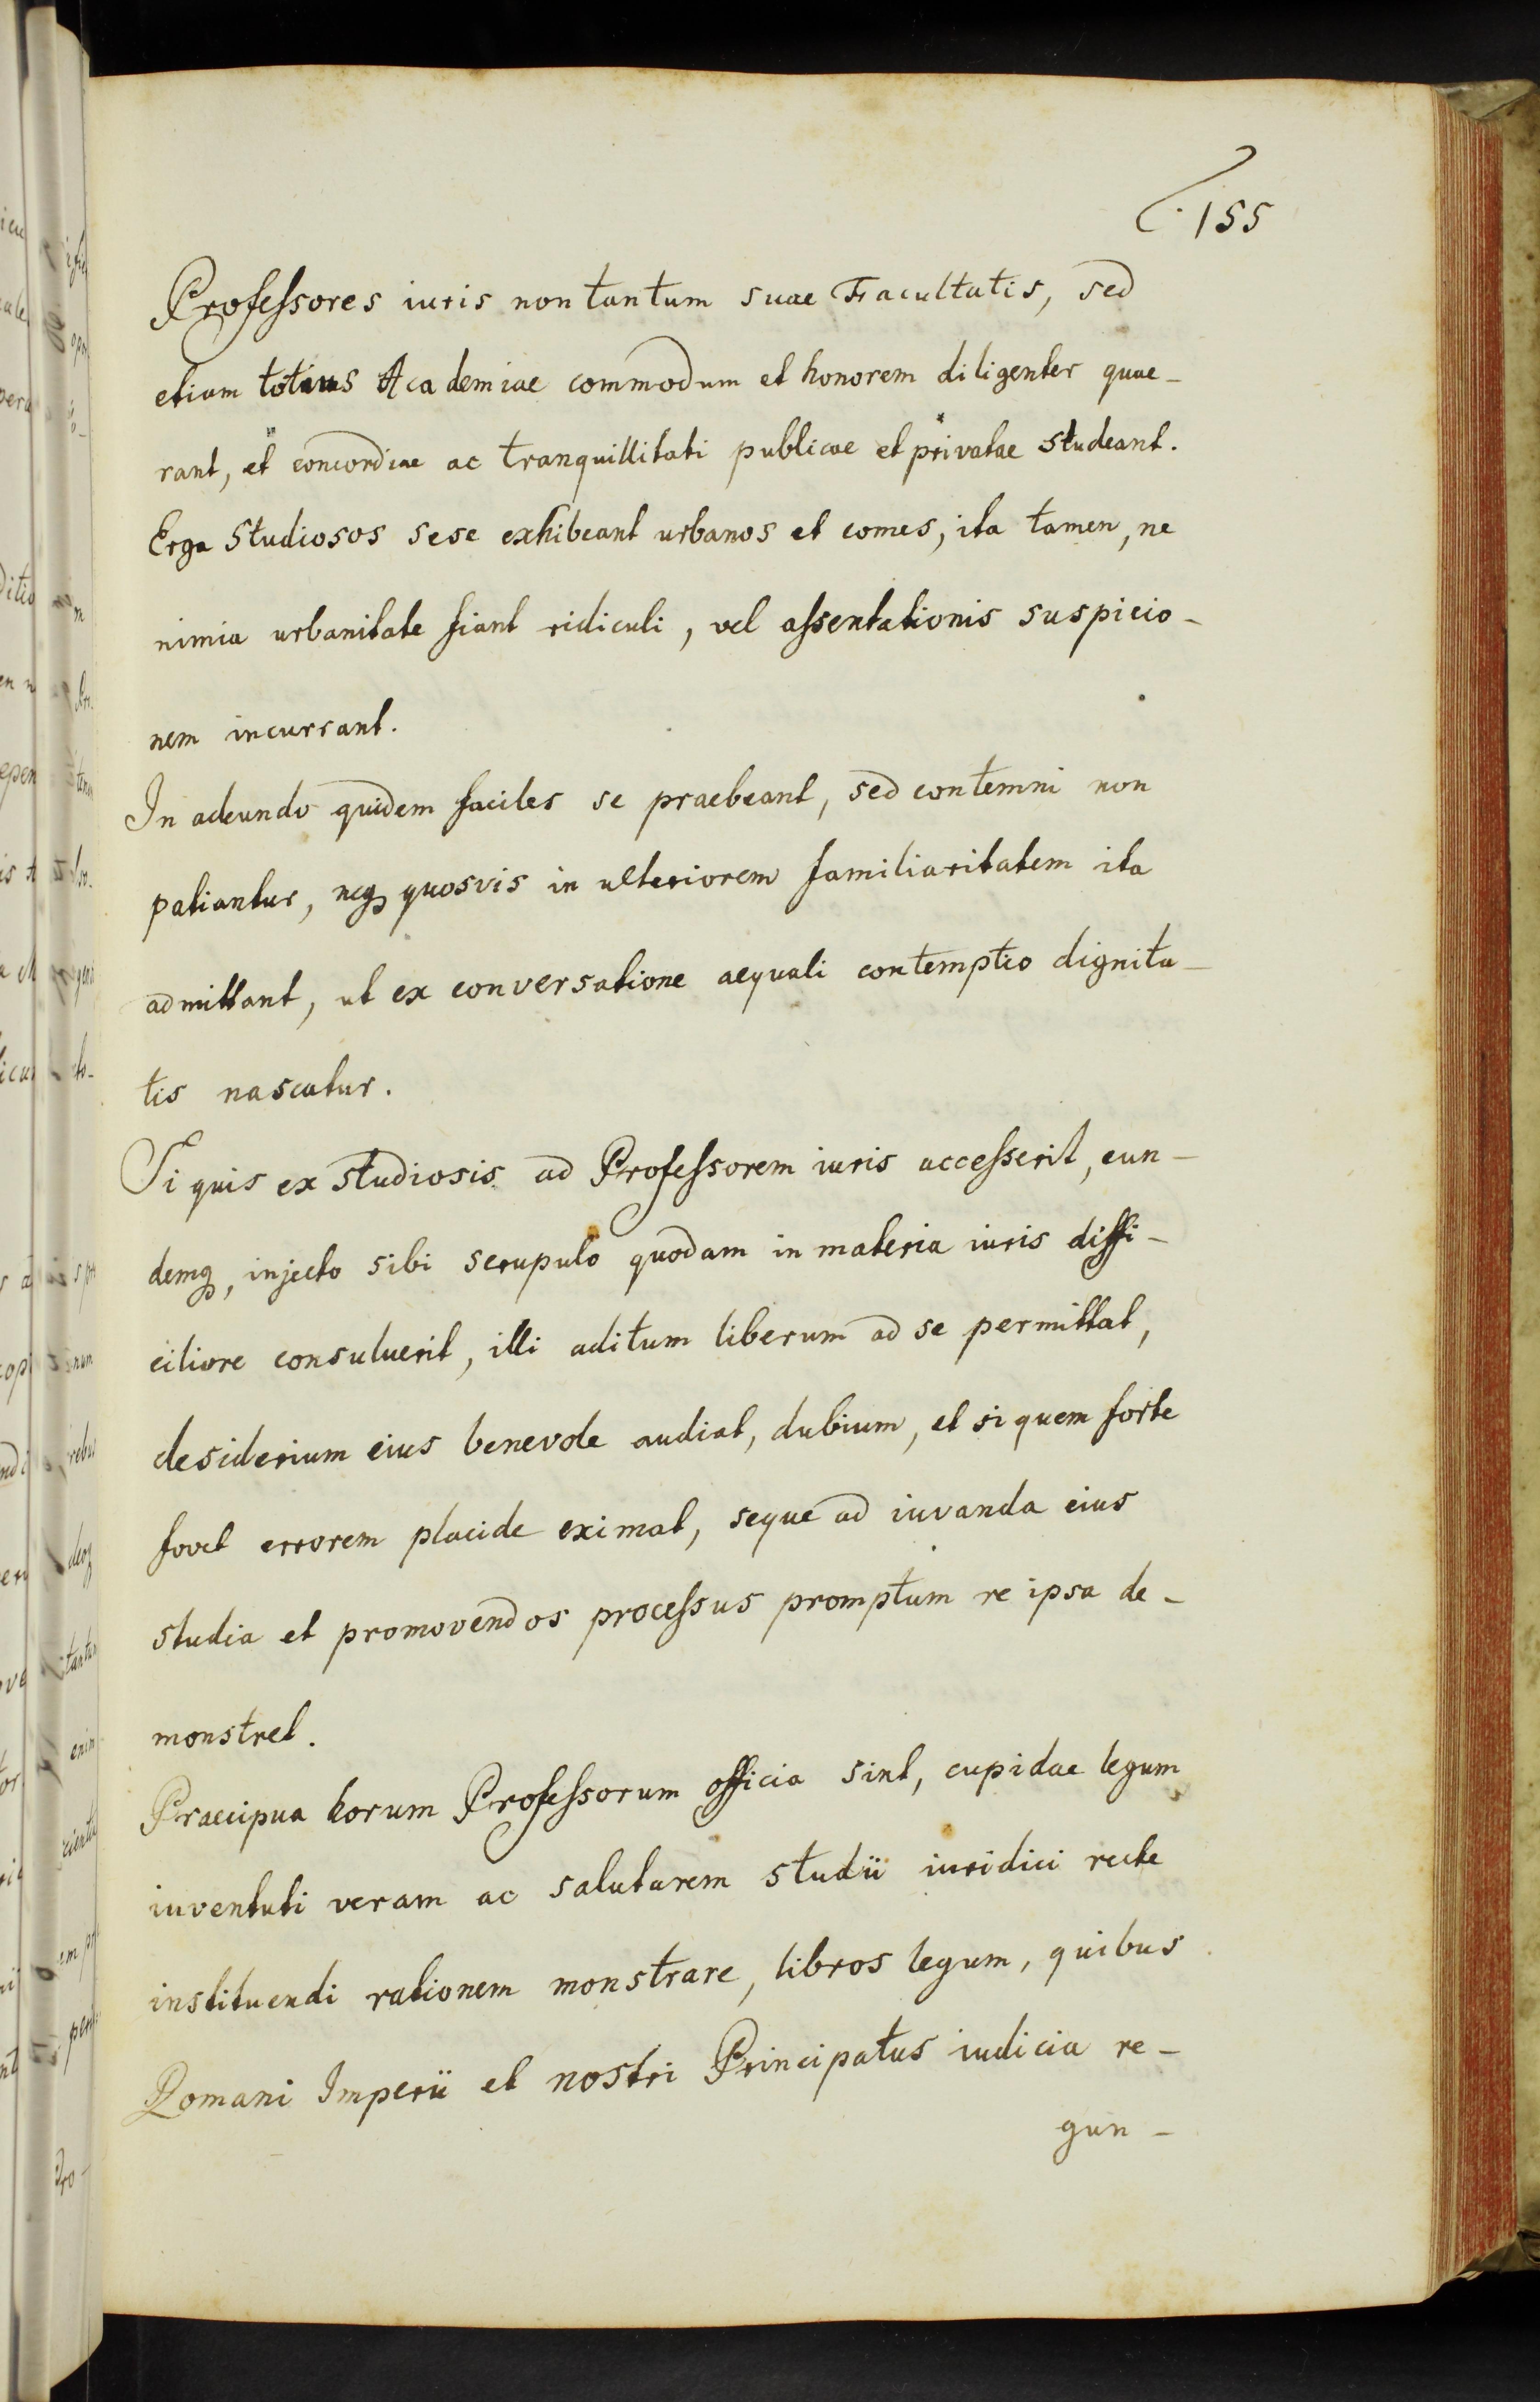 155
Professores iuris non tantum suae Facultatis, sed
etiam totius Academiae commodum et honorem diligenter quae-
rant, et concordiae ac tranquillitati publicae et privatae studeant.
Erga studiosos sese exhibeant urbanos et comes, ita tamen, ne
nimia urbanitate fiant ridiculi, vel assentationis suspicio-
nem incurrant.
In adeundo quidem faciles se praebeant, sed contemni non
patiantur, neq quosvis in ulteriorem familiaritatem ita
admittant, ut ex conversatione aequali contemptio dignita-
tis nascatur.
Si quis ex studiosis ad Professorem iuris accesserit, eun-
demq, injecto sibi scrupulo quodam in materia iuris diffi-
ciliore consuluerit, illi aditum liberum ad se permittat,
desiderium eius benevole audiat, dubium, et si quem forte
fovet errorem placide eximat, seque ad iuvanda eius
studia et promovendos processus promptum re ipsa de-
monstret.
Praecipua horum Professorum officia sint, cupidae legum
iuventuti veram ac salutarem studii iuridici recte
instituendi rationem monstrare, libros legum, quibus
Romani Imperii et nostri Principatus iudicia re-
gun-